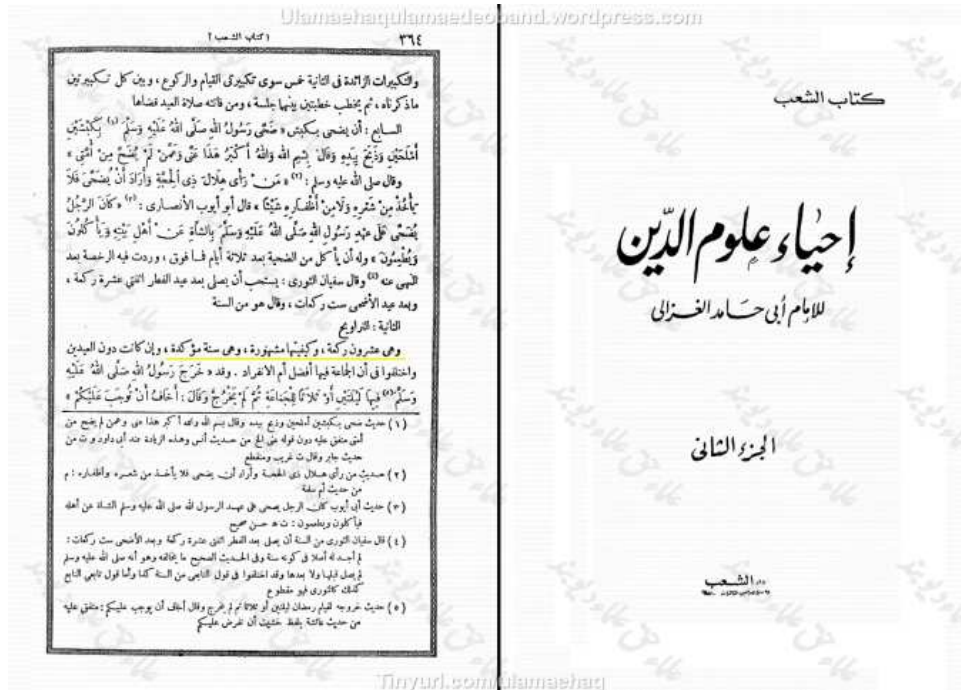 Ulamaehaqulamaedeoband.wordpress.com
٣٦٤
( كتاب الشعب )
والتكبيرات الزائدة فى الثانية خمس سوى تكبيرتى القيام والركوع ، وبين كل تكبيرتين
ما ذكرناه ، ثم يخطب خطبتين بينهما جلسة ، ومن فاتته صلاة العيد قضاها
السابع : أن يضحى بكبش « ضَحَّى رَسُولُ اللهِ صَلَّى اللهُ عَلَيْهِ وَسَلَّمَ (١) بِكَبْشَيْنِ
أَمْلَحَيْنِ وَذَبَحَ بِيَدِهِ وَقَالَ بِسْمِ اللهِ وَاللهُ أَكْبَرُ هَذَا عَنِّى وَعَمَّنْ لَمْ يُضَحِّ مِنْ أُمَّتِى »
وقال صلى الله عليه وسلم : (٢) « مَنْ رَأَى هِلَالَ ذِى الْحِجَّةِ وَأَرَادَ أَنْ يُضَحِّىَ فَلَا
يَأْخُذْ مِنْ شَعْرِهِ وَلَا مِنْ أَظْفَارِهِ شَيْئًا » قال أبو أيوب الأنصارى : (٣) « كَانَ الرَّجُلُ
يُضَحِّى عَلَى عَهْدِ رَسُولِ اللهِ صَلَّى اللهُ عَلَيْهِ وَسَلَّمَ بِالشَّاةِ عَنْ أَهْلِ بَيْتِهِ وَيَأْكُلُونَ
وَيُطْعِمُونَ » وله أن يأكل من الضحية بعد ثلاثة أيام فما فوق ، وردت فيه الرخصة بعد
النهى عنه (٤) وقال سفيان الثورى : يستحب أن يصلى بعد عيد الفطر اثنتى عشرة ركعة ،
وبعد عيد الأضحى ست ركعات ، وقال هو من السنة
الثانية : التراويح
وهى عشرون ركعة ، وكيفيتها مشهورة ، وهى سنة مؤكدة ، وإن كانت دون العيدين
واختلفوا فى أن الجماعة فيها أفضل أم الانفراد . وقد « خَرَجَ رَسُولُ اللهِ صَلَّى اللهُ عَلَيْهِ
وَسَلَّمَ (٥) فِيهَا لَيْلَتَيْنِ أَوْ ثَلَاثًا لِلْجَمَاعَةِ ثُمَّ لَمْ يَخْرُجْ وَقَالَ : أَخَافُ أَنْ تُوجَبَ عَلَيْكُمْ »
(١) حديث ضحى بكبشين أملحين وذبح بيده وقال بسم الله والله أكبر هذا عنى وعمن لم يضح من
أمتى متفق عليه دون قوله عنى الخ من حديث أنس وهذه الزيادة عند أبى داود و ت من
حديث جابر وقال ت غريب ومنقطع
(٢) حديث من رأى هلال ذى الحجة وأراد أن يضحى فلا يأخذ من شعره وأظفاره : م
من حديث أم سلمة
(٣) حديث أبى أيوب كان الرجل يضحى على عهد الرسول الله صلى الله عليه وسلم الشاة عن أهله
فيأكلون ويطعمون : ت ه حسن صحيح
(٤) قال سفيان الثورى من السنة أن يصلى بعد الفطر اثنتى عشرة ركعة وبعد الأضحى ست ركعات :
لم أجد له أصلا فى كونه سنة وفى الحديث الصحيح ما يخالفه وهو أنه صلى الله عليه وسلم
لم يصل قبلها ولا بعدها وقد اختلفوا فى قول التابعى من السنة كذا وأما قول تابعى التابع
كذلك كالثورى فهو مقطوع
(٥) حديث خروجه لقيام رمضان ليلتين أو ثلاثا ثم لم يخرج وقال أخاف أن يوجب عليكم : متفق عليه
من حديث عائشة بلفظ خشيت أن تفرض عليكم
كتاب الشعب
إحياء علوم الدّين
للإمام أبى حامد الغزالى
الجزء الثانى
دار الشعب
Tinyurl.com/ulamaehaq